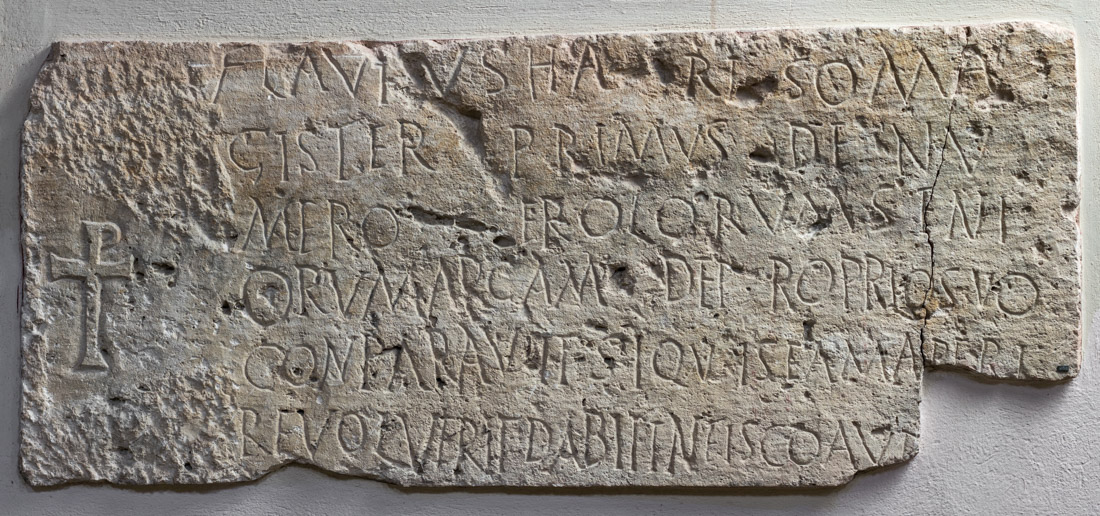 FLAVIVS HARISO MA
GISTER PRIMVS DE NV
MERO EROLORVM SENI
ORVM ARCAM DE PROPRIO SVO
CONPARAVIT SI QVIS EAM APERI
RE VOLVERIT DABIT IN FISCO AV